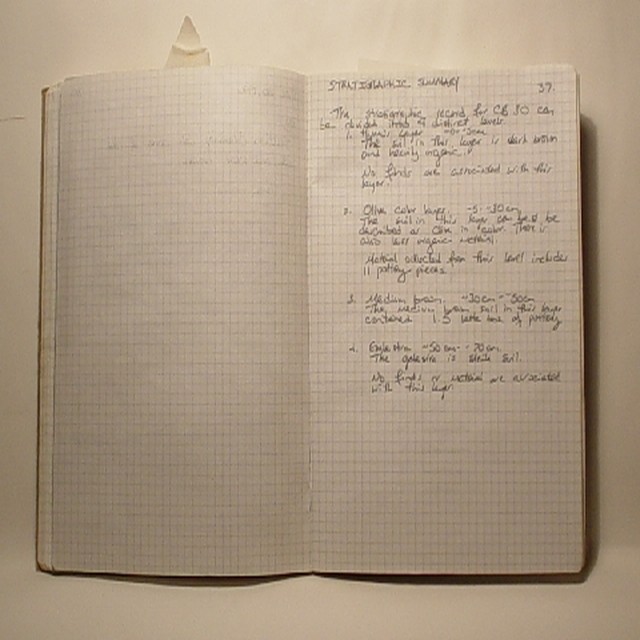 STRATIGRAPHIC SUMMARY 37.
The stratigraphic record for CB 10 can
be divided into 4 distinct levels.
1. Humic Layer -0--5cm
The soil in this layer is dark brown
and heavily organic.
No finds are associated with this
layer.
2. Olive color layer. -5--30cm
The soil in this layer can best be
described as Olive in color. There is
also less organic material.
Material collected from this level includes
11 pottery pieces.
3. Medium brown. -30cm--50cm
The medium brown soil in this layer
contained 1.5 of pottery
4. -50cm--70cm.
The is sterile soil.
No finds or material are associated
with this layer.